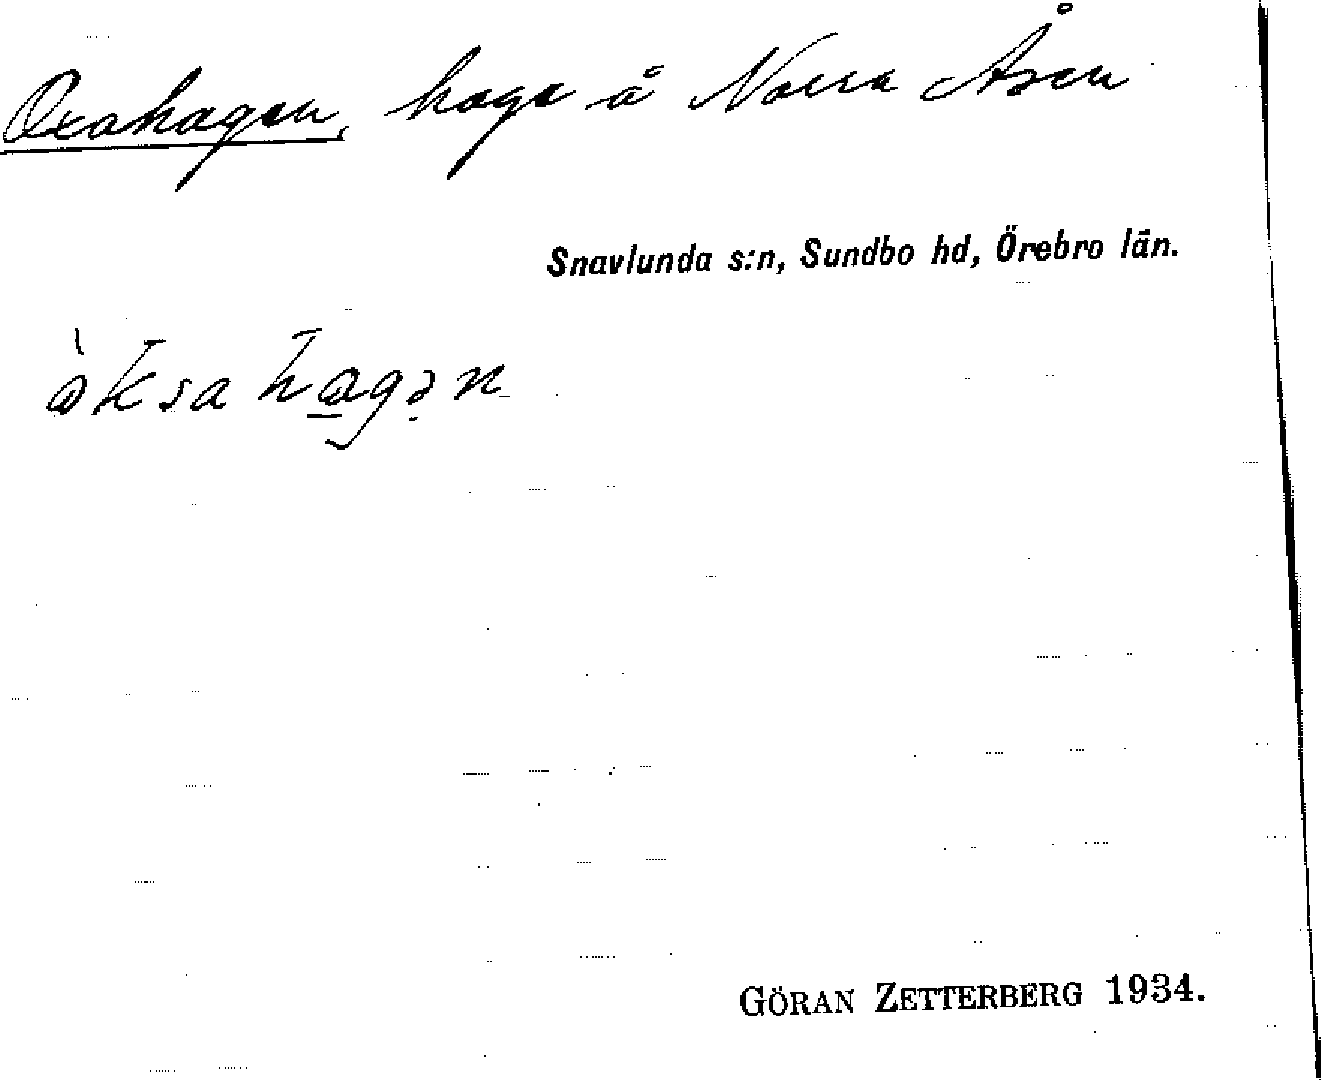 Oxahagen, hage å Norra Åsen
Snavlunda s:n, Sundbo hd, Örebro län.
òksahagən
GÖRAN ZETTERBERG 1934.